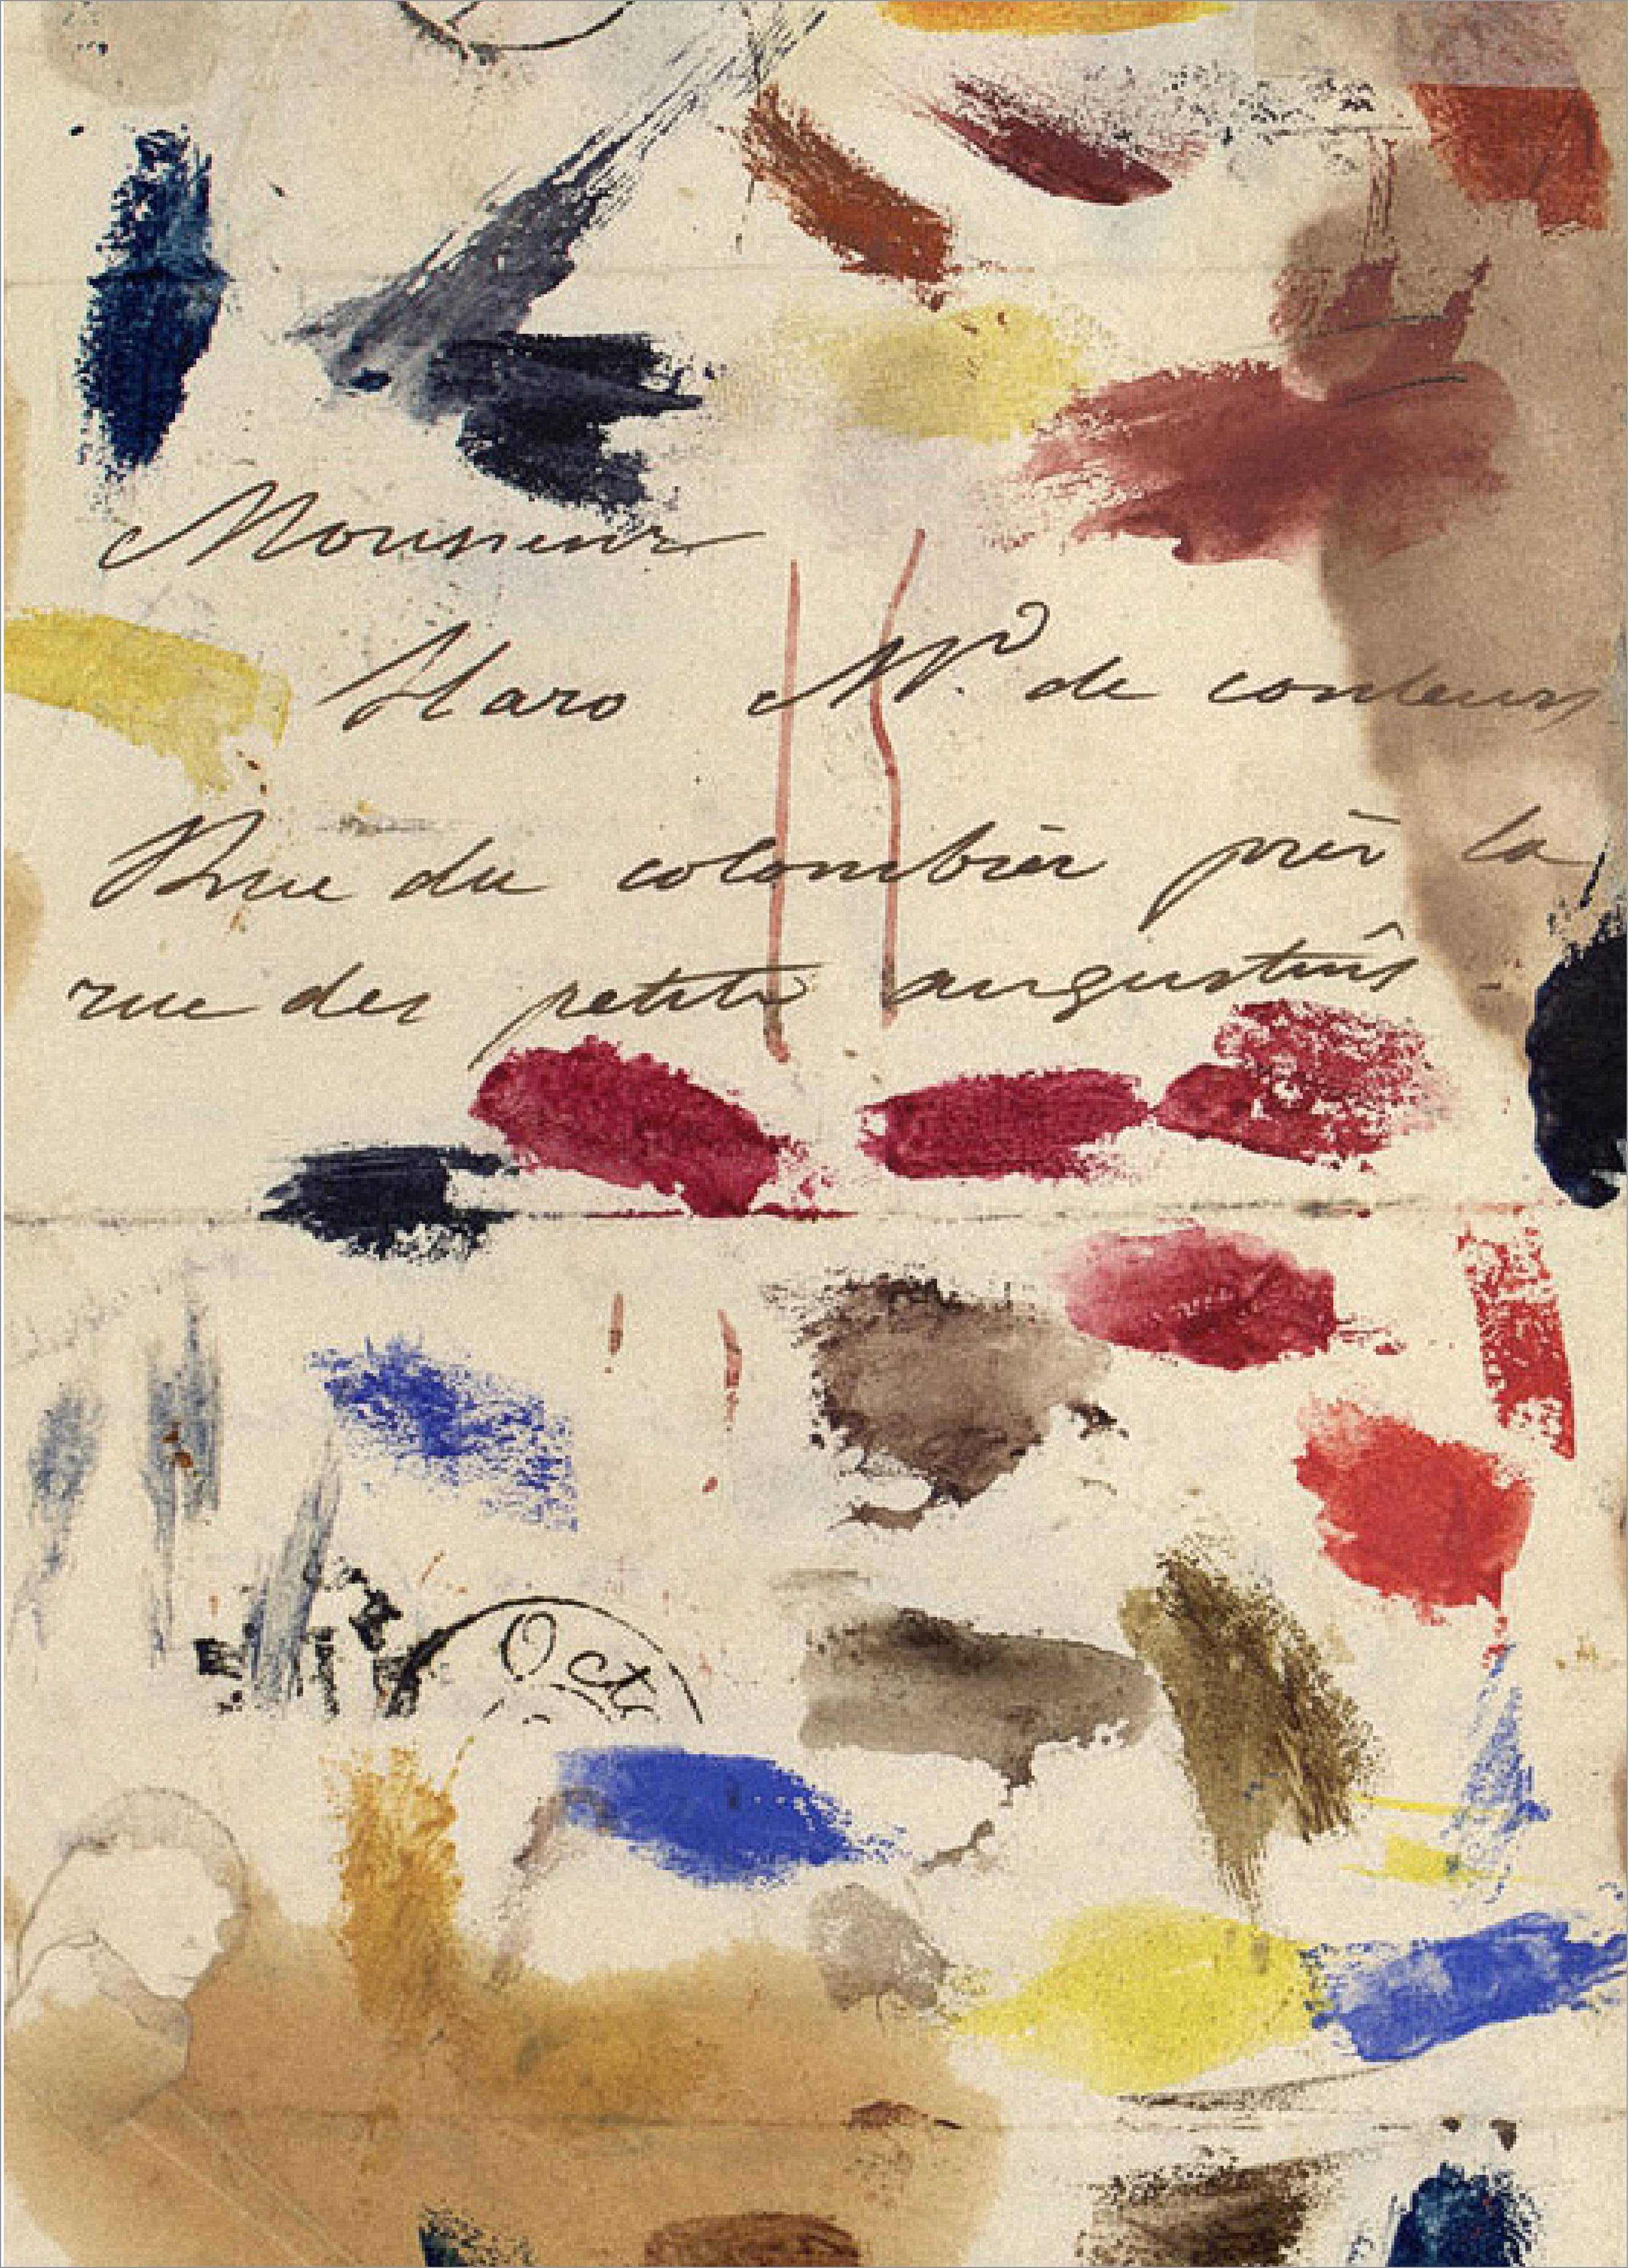 Monsieur
Haro Md. de couleurs
Rue du colombier près la
rue des petits augustins
Oct